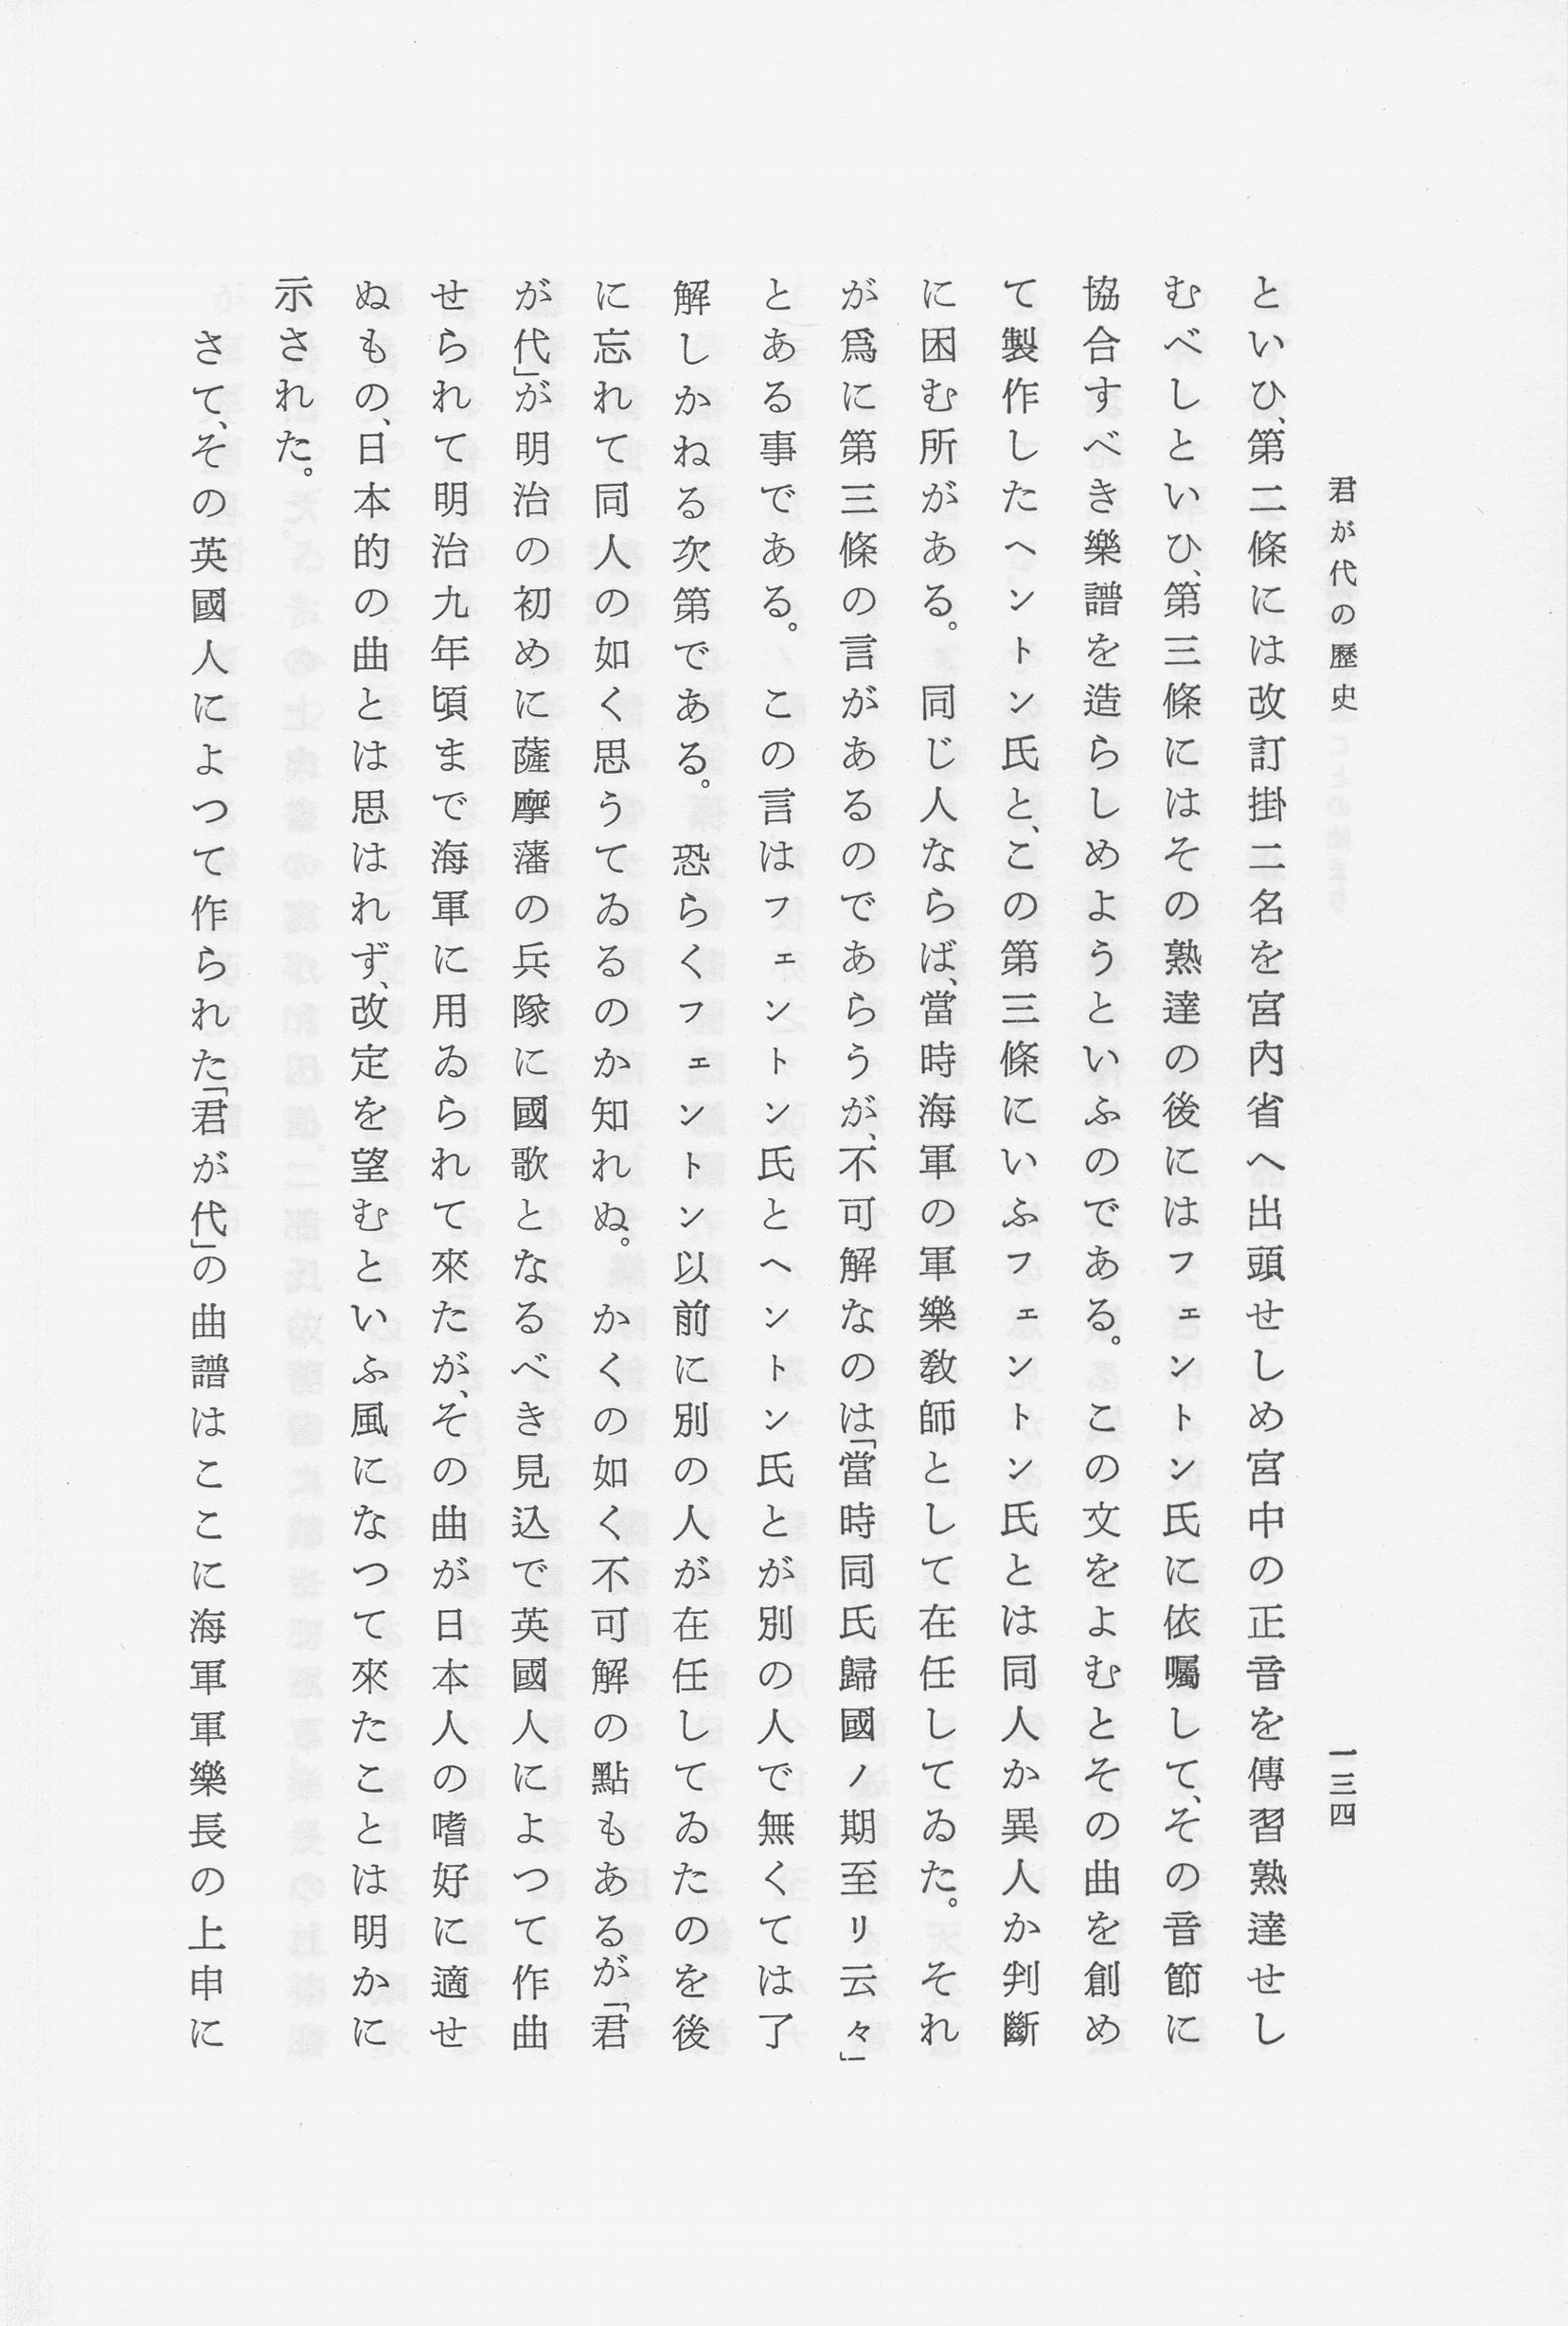 君が代の歴史
一三四
といひ、第二條には改訂掛二名を宮内省へ出頭せしめ宮中の正音を傳習熟達せし
むべしといひ、第三條にはその熟達の後にはフェントン氏に依囑して、その音節に
協合すべき樂譜を造らしめようといふのである。この文をよむとその曲を創め
て製作したヘントン氏と、この第三條にいふフェントン氏とは同人か異人か判斷
に困む所がある。同じ人ならば、當時海軍の軍樂教師として在任してゐた。それ
が爲に第三條の言があるのであらうが、不可解なのは「當時同氏歸國ノ期至リ云々」
とある事である。この言はフェントン氏とヘントン氏とが別の人で無くては了
解しかねる次第である。恐らくフェントン以前に別の人が在任してゐたのを後
に忘れて同人の如く思うてゐるのか知れぬ。かくの如く不可解の點もあるが「君
が代」が明治の初めに薩摩藩の兵隊に國歌となるべき見込で英國人によつて作曲
せられて明治九年頃まで海軍に用ゐられて來たが、その曲が日本人の嗜好に適せ
ぬもの、日本的の曲とは思はれず、改定を望むといふ風になつて來たことは明かに
示された。
さて、その英國人によつて作られた「君が代」の曲譜はここに海軍軍樂長の上申に